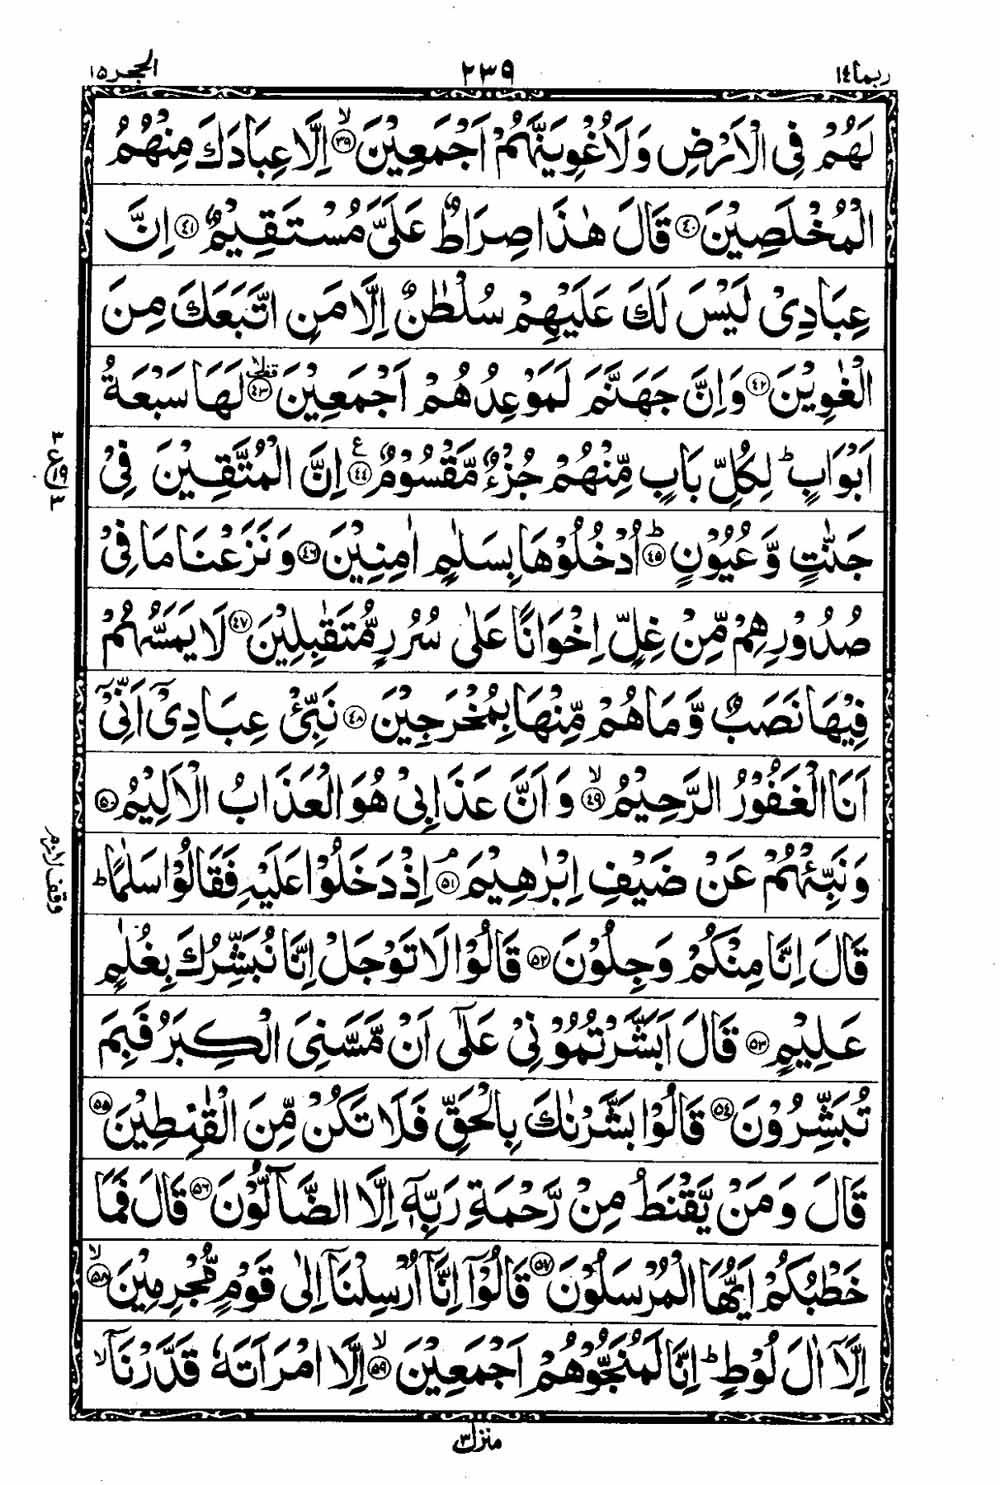 ربما ١٤
٢٣٩
الحجر ١٥
لَهُمْ فِی الْاَرْضِ وَلَاُغْوِیَنَّهُمْ اَجْمَعِیْنَ ۙ﴿٣٩﴾ اِلَّا عِبَادَكَ مِنْهُمُ
الْمُخْلَصِیْنَ ﴿٤٠﴾ قَالَ هٰذَا صِرَاطٌ عَلَیَّ مُسْتَقِیْمٌ ﴿٤١﴾ اِنَّ
عِبَادِیْ لَیْسَ لَكَ عَلَیْهِمْ سُلْطٰنٌ اِلَّا مَنِ اتَّبَعَكَ مِنَ
الْغٰوِیْنَ ﴿٤٢﴾ وَاِنَّ جَهَنَّمَ لَمَوْعِدُهُمْ اَجْمَعِیْنَ ﴿٤٣﴾ لَهَا سَبْعَةُ
اَبْوَابٍ ؕ لِكُلِّ بَابٍ مِّنْهُمْ جُزْءٌ مَّقْسُوْمٌ ﴿٤٤﴾ اِنَّ الْمُتَّقِیْنَ فِیْ
جَنّٰتٍ وَّعُیُوْنٍ ؕ﴿٤٥﴾ اُدْخُلُوْهَا بِسَلٰمٍ اٰمِنِیْنَ ﴿٤٦﴾ وَنَزَعْنَا مَا فِیْ
صُدُوْرِهِمْ مِّنْ غِلٍّ اِخْوَانًا عَلٰی سُرُرٍ مُّتَقٰبِلِیْنَ ﴿٤٧﴾ لَا یَمَسُّهُمْ
فِیْهَا نَصَبٌ وَّمَا هُمْ مِّنْهَا بِمُخْرَجِیْنَ ﴿٤٨﴾ نَبِّئْ عِبَادِیْۤ اَنِّیْۤ
اَنَا الْغَفُوْرُ الرَّحِیْمُ ۙ﴿٤٩﴾ وَاَنَّ عَذَابِیْ هُوَ الْعَذَابُ الْاَلِیْمُ ﴿٥٠﴾
وَنَبِّئْهُمْ عَنْ ضَیْفِ اِبْرٰهِیْمَ ۘ﴿٥١﴾ اِذْ دَخَلُوْا عَلَیْهِ فَقَالُوْا سَلٰمًا ؕ
قَالَ اِنَّا مِنْكُمْ وَجِلُوْنَ ﴿٥٢﴾ قَالُوْا لَا تَوْجَلْ اِنَّا نُبَشِّرُكَ بِغُلٰمٍ
عَلِیْمٍ ﴿٥٣﴾ قَالَ اَبَشَّرْتُمُوْنِیْ عَلٰۤی اَنْ مَّسَّنِیَ الْكِبَرُ فَبِمَ
تُبَشِّرُوْنَ ﴿٥٤﴾ قَالُوْا بَشَّرْنٰكَ بِالْحَقِّ فَلَا تَكُنْ مِّنَ الْقٰنِطِیْنَ ﴿٥٥﴾
قَالَ وَمَنْ یَّقْنَطُ مِنْ رَّحْمَةِ رَبِّهٖۤ اِلَّا الضَّآلُّوْنَ ﴿٥٦﴾ قَالَ فَمَا
خَطْبُكُمْ اَیُّهَا الْمُرْسَلُوْنَ ﴿٥٧﴾ قَالُوْۤا اِنَّاۤ اُرْسِلْنَاۤ اِلٰی قَوْمٍ مُّجْرِمِیْنَ ۙ﴿٥٨﴾
اِلَّاۤ اٰلَ لُوْطٍ ؕ اِنَّا لَمُنَجُّوْهُمْ اَجْمَعِیْنَ ۙ﴿٥٩﴾ اِلَّا امْرَاَتَهٗ قَدَّرْنَاۤ ۙ
منزل ٣
٣ ع ١٩ ٣
وقف لازم